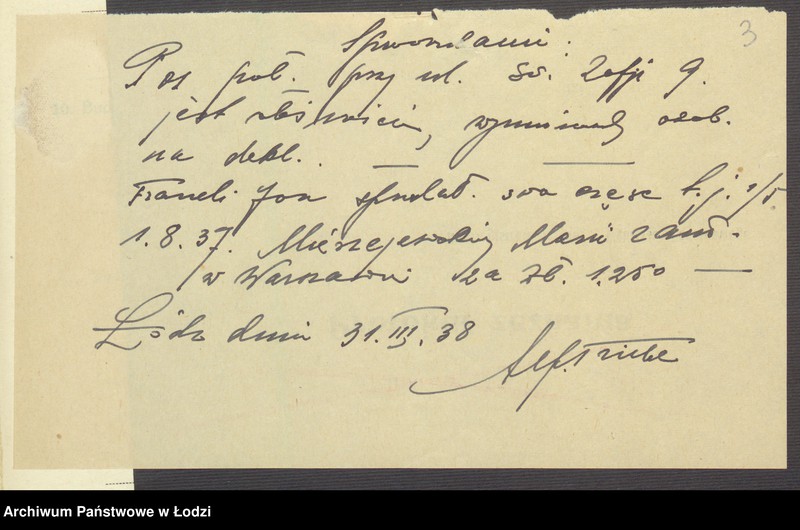 3
Sprawozdanie:
Pos. poł. przy ul. Św. Zofji 9.
jest własnością wymienionych osób.
na dekl.
Franck Jan sprzedał. swą część t.j. 1/5
1.8.37. Mierzejewskiej Marii zam.
w Warszawie za zł. 1.250 —
Łódź dnia 31.III.38
Archiwum Państwowe w Łodzi